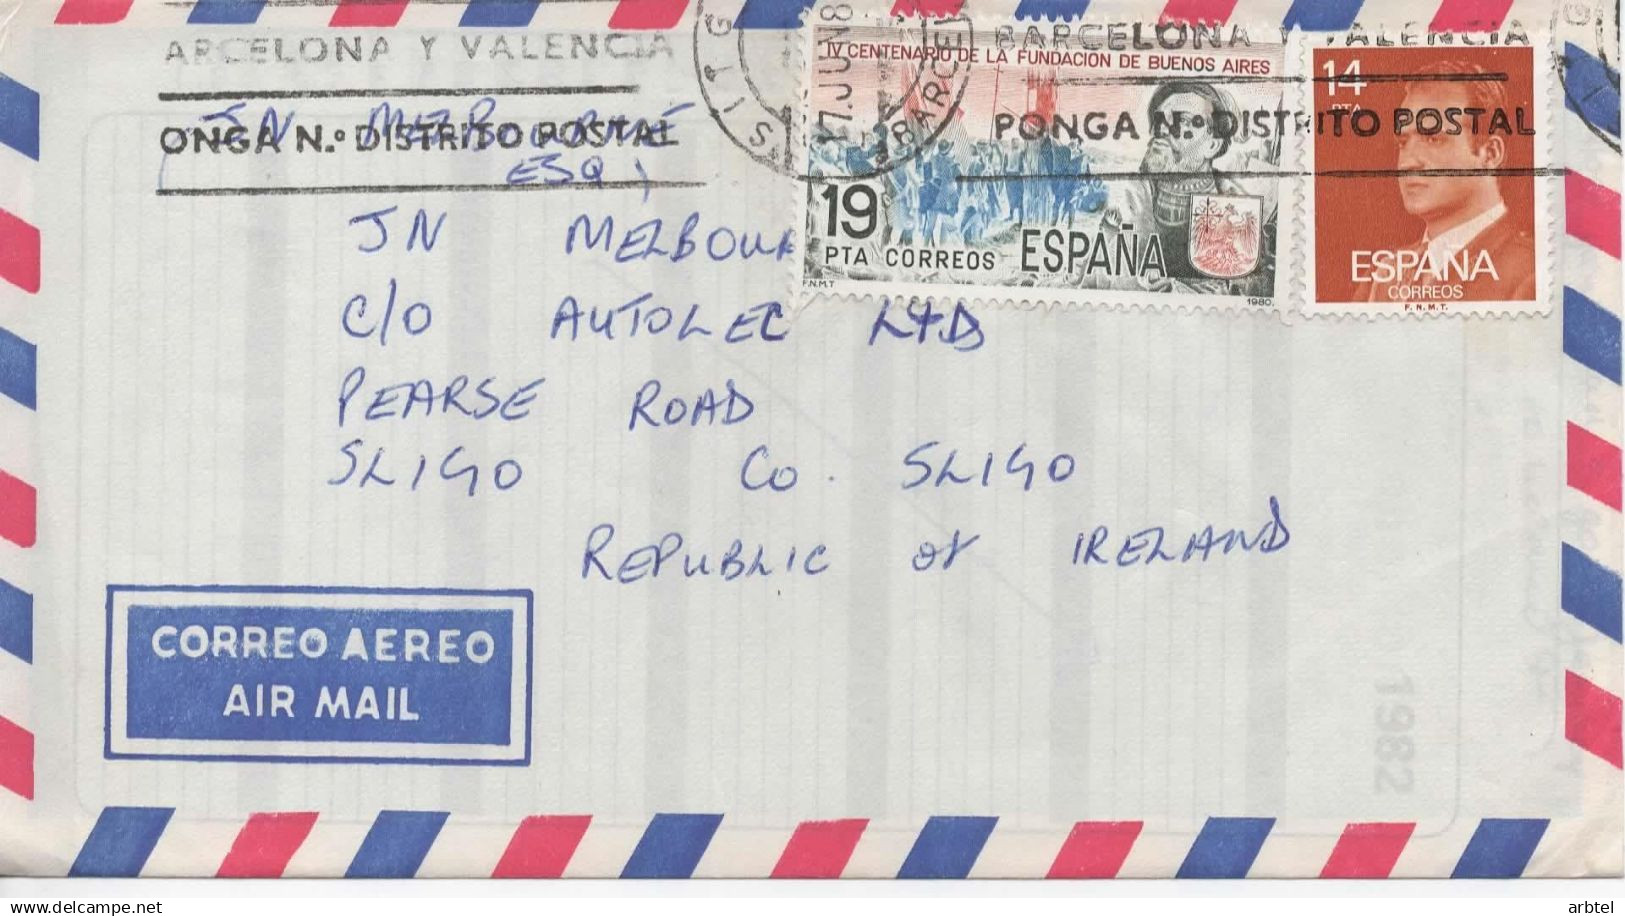 ARCELONA Y VALENCIA
ONGA N.º DISTRITO POSTAL
SITG
17.JUN8
BARCEL
BARCELONA Y VALENCIA
PONGA N.º DISTRITO POSTAL
IV CENTENARIO DE LA FUNDACION DE BUENOS AIRES
19
PTA CORREOS ESPAÑA
F.N.M.T 1980.
14
PTA
ESPAÑA
CORREOS
F.N.M.T.
JN MELBOURNE
ESQ,
JN MELBOUR
C/O AUTOLEC LTD
PEARSE ROAD
SLIGO CO. SLIGO
REPUBLIC OF IRELAND
CORREO AEREO
AIR MAIL
1982
arbtel